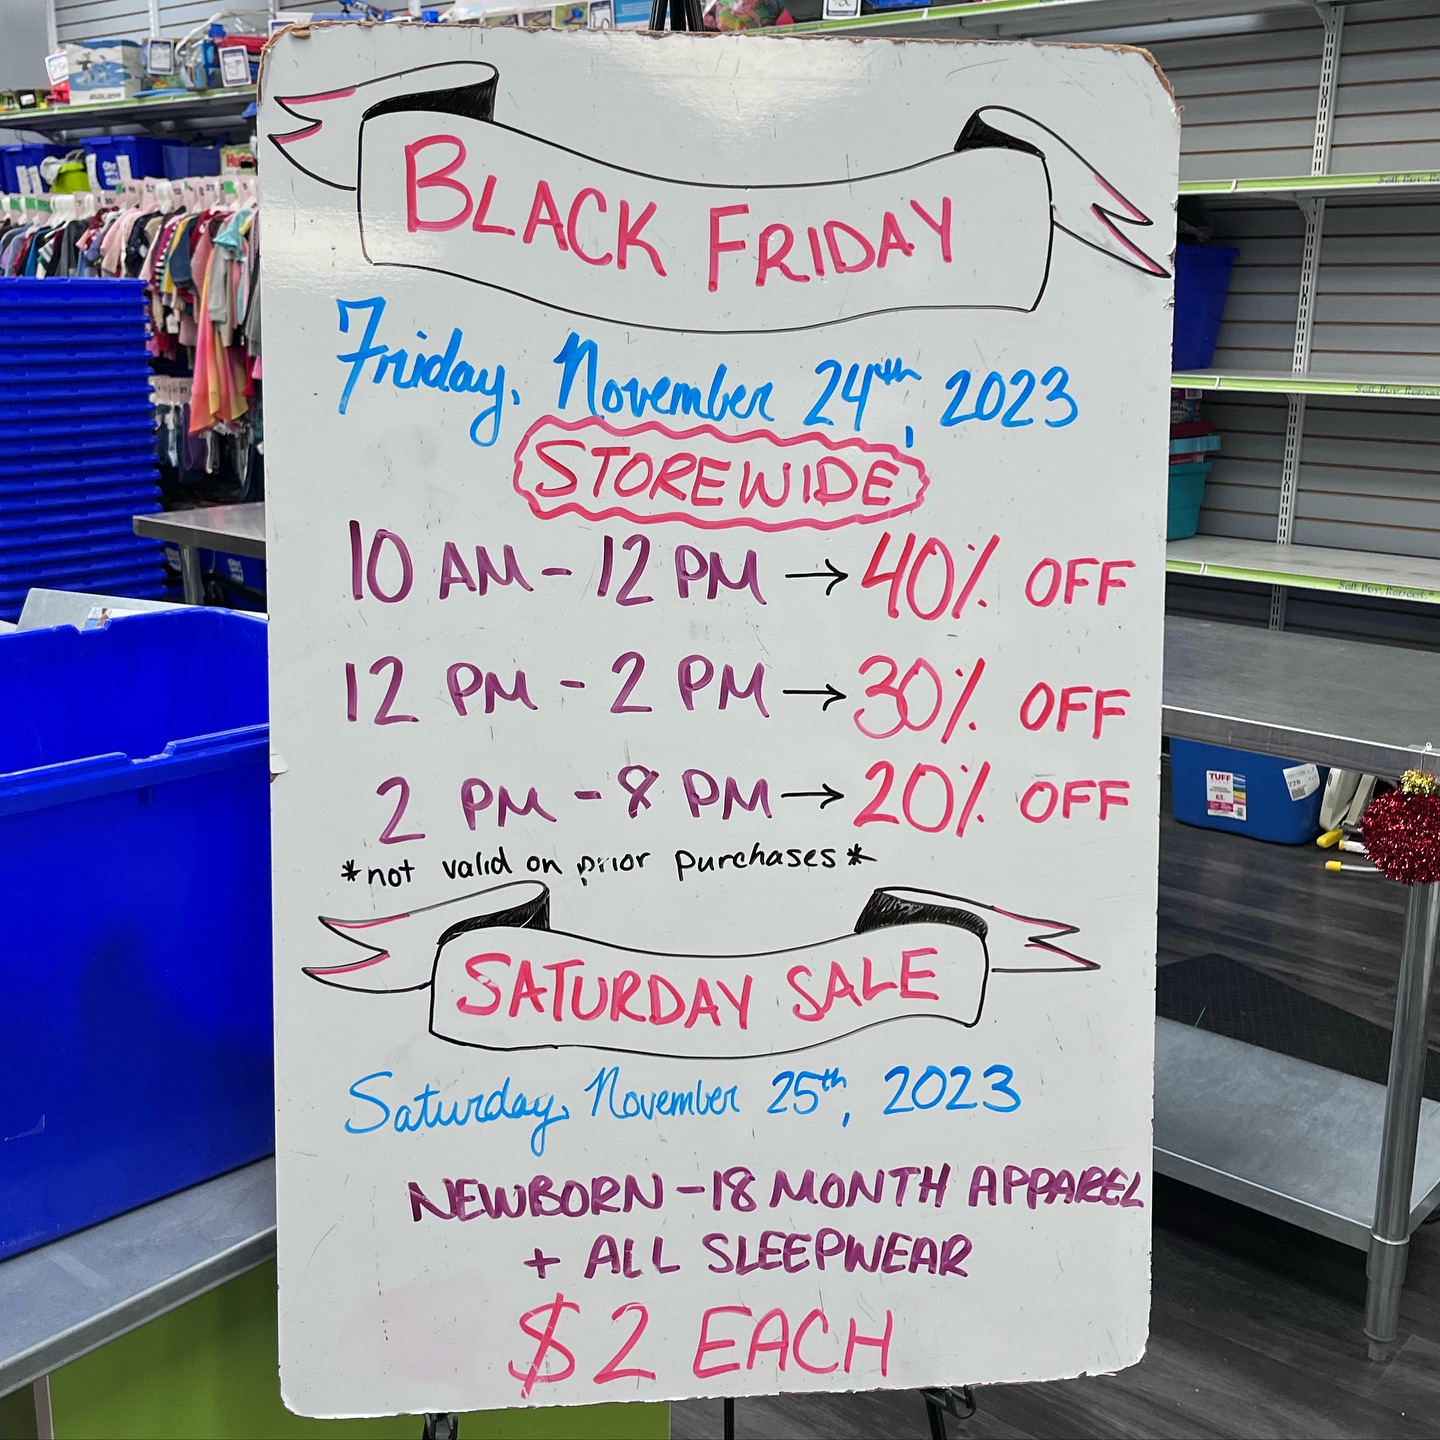 BLACK FRIDAY
Friday, November 24th, 2023
STOREWIDE
10 AM - 12 PM → 40% OFF
12 PM - 2 PM → 30% OFF
2 PM - 8 PM → 20% OFF
*not valid on prior purchases*
SATURDAY SALE
Saturday, November 25th, 2023
NEWBORN - 18 MONTH APPAREL
+ ALL SLEEPWEAR
$2 EACH
TUFF